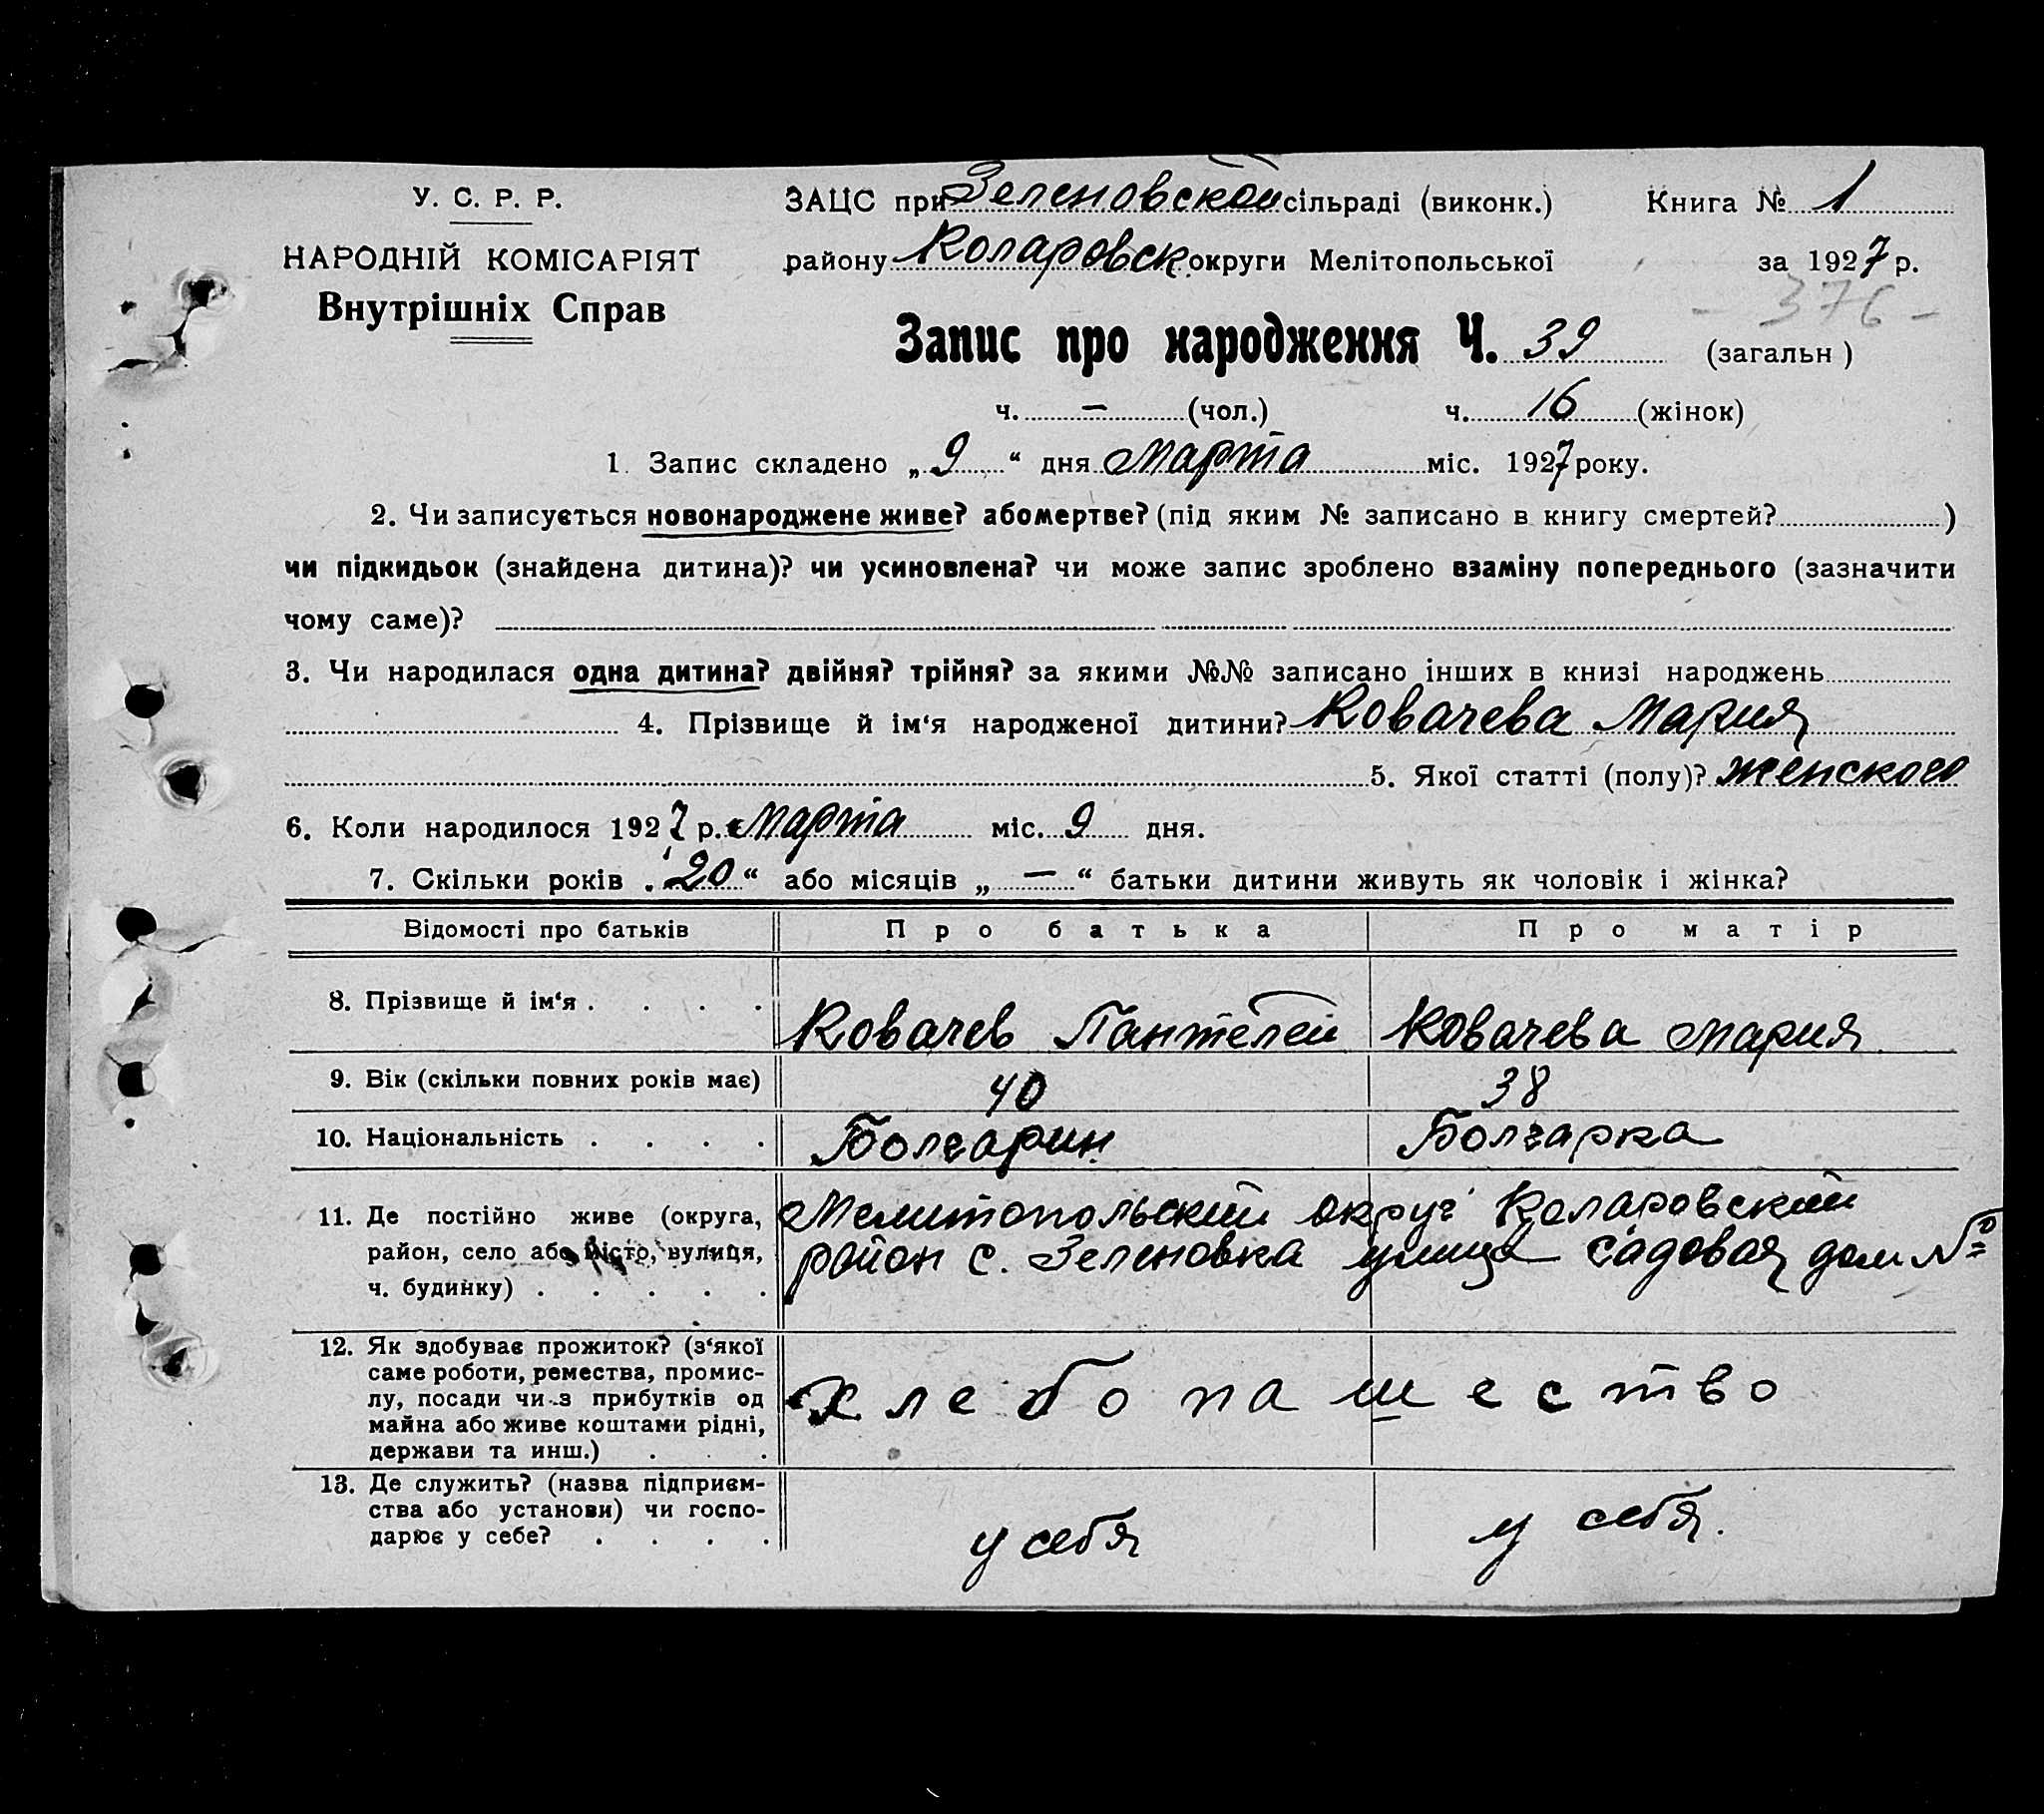 У. С. Р. Р.
НАРОДНІЙ КОМІСАРІЯТ
Внутрішніх Справ
ЗАЦС при Зеленовской сільраді (виконк.) Книга № 1
району Коларовск. округи Мелітопольської за 1927 р.
- 376 -
Запис про народження Ч. 39 (загальн)
ч. — (чол.) ч. 16 (жінок)
1. Запис складено „9“ дня марта міс. 1927 року.
2. Чи записується новонароджене живе? або мертве? (під яким № записано в книгу смертей? )
чи підкидьок (знайдена дитина)? чи усиновлена? чи може запис зроблено взаміну попереднього (зазначити
чому саме)?
3. Чи народилася одна дитина? двійня? трійня? за якими №№ записано інших в книзі народжень
4. Прізвище й ім‘я народженої дитини? Ковачева Мария
5. Якої статті (полу)? женского
6. Коли народилося 1927 р. марта міс. 9 дня.
7. Скільки років „20“ або місяців „—“ батьки дитини живуть як чоловік і жінка?
Відомості про батьків Про батька Про матір
8. Прізвище й ім‘я . . . . Ковачев Пантелей Ковачева Мария
9. Вік (скільки повних років має) 40 38
10. Національність . . . . Болгарин Болгарка
11. Де постійно живе (округа, Мелитопольский округ Коларовский
район, село або місто, вулиця, район с. Зеленовка улица Садовая дом №
ч. будинку) . . . . .
12. Як здобуває прожиток? (з‘якої
саме роботи, ремества, промис-
лу, посади чи з прибутків од хлебопашество
майна або живе коштами рідні,
держави та инш.) . . .
13. Де служить? (назва підприєм-
ства або установи) чи госпо- у себя у себя.
дарює у себе? . . . .